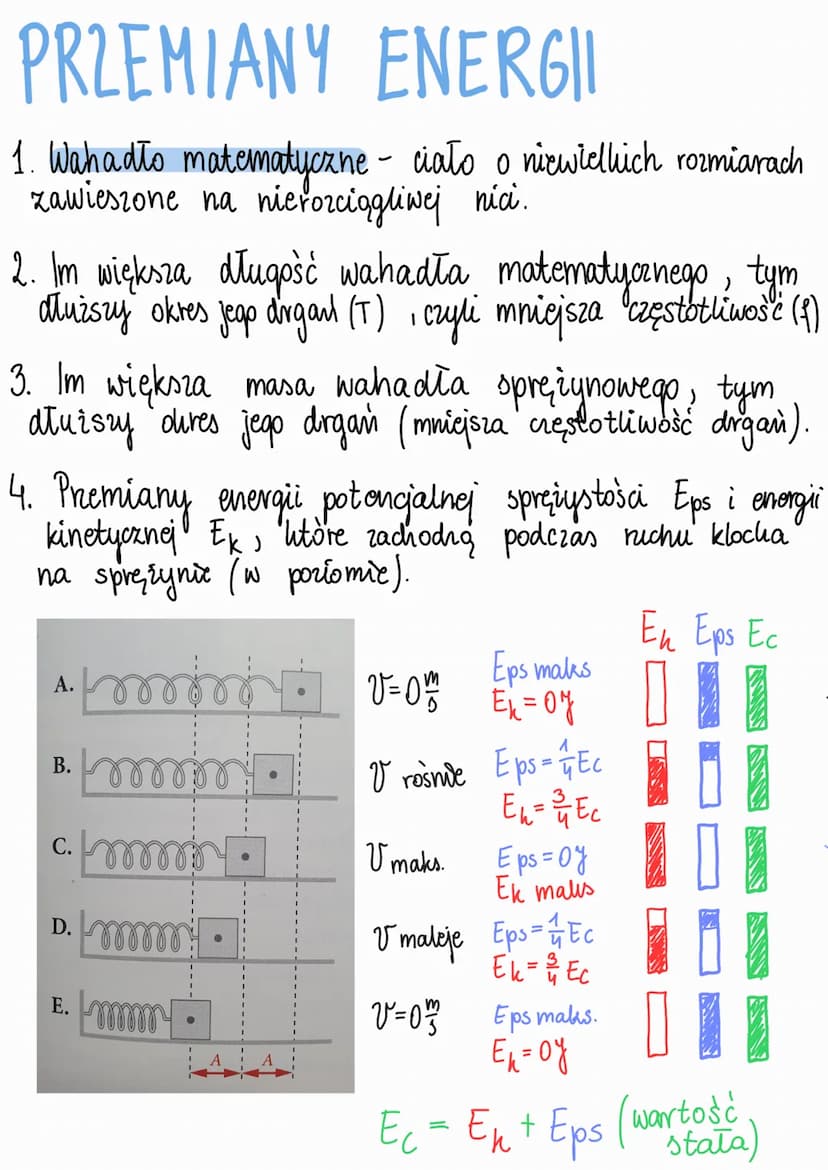 PRZEMIANY ENERGII
1. Wahadło matematyczne - ciało o niewielkich rozmiarach
zawieszone na nierozciągliwej nici.
2. Im większa długość wahadła matematycznego, tym
dłuższy okres jego drgań (T), czyli mniejsza częstotliwość (f)
3. Im większa masa wahadła sprężynowego, tym
dłuższy okres jego drgań (mniejsza częstotliwość drgań).
4. Przemiany energii potencjalnej sprężystości Eps i energii
kinetycznej Ek, które zachodzą podczas ruchu klocka
na sprężynie (w poziomie).
Ek Eps Ec
A. V=0 m/s Eps maks
Ek = 0J
B. V rośnie Eps = 1/4 Ec
Ek = 3/4 Ec
C. V maks. Eps = 0J
Ek maks
D. V maleje Eps = 1/4 Ec
Ek = 3/4 Ec
E. V=0 m/s Eps maks.
Ek = 0J
A A
Ec = Ek + Eps (wartość
stała)